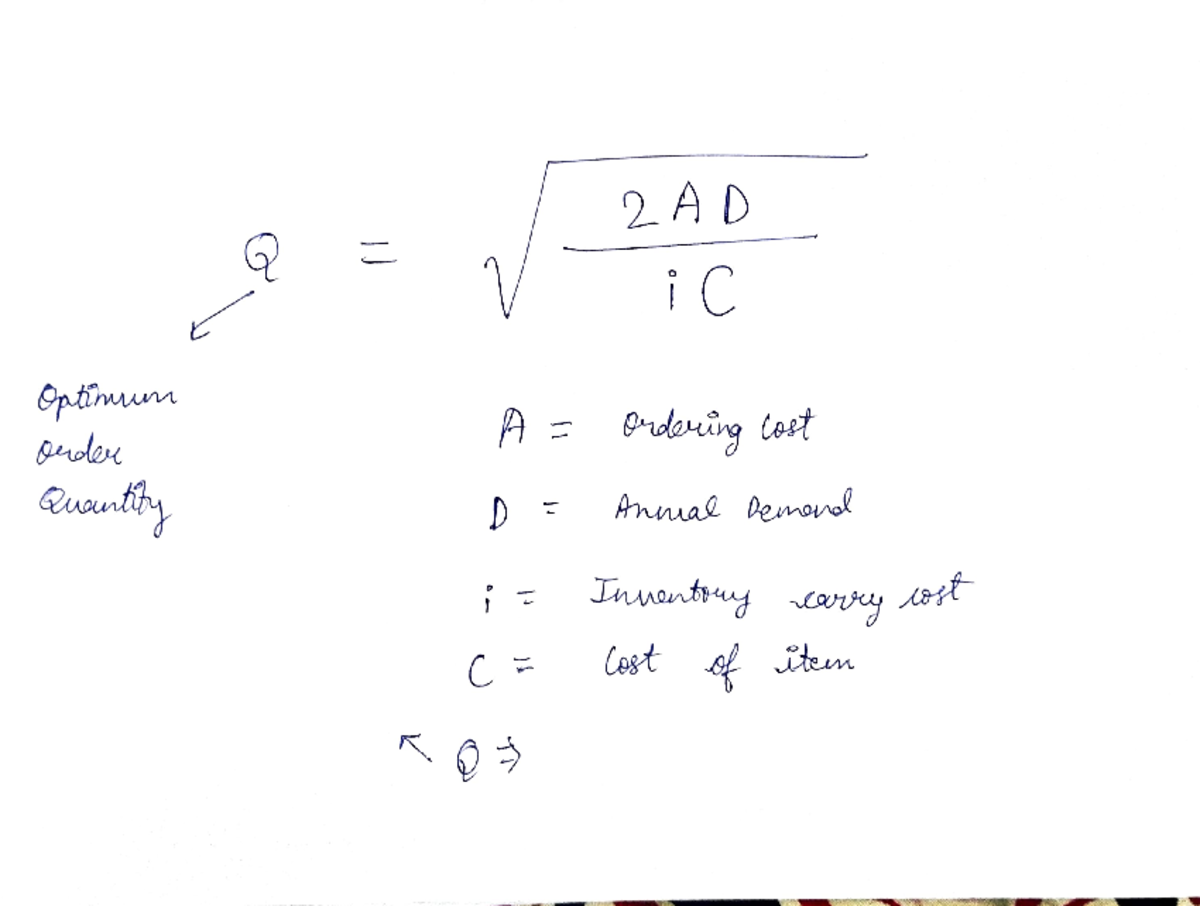 Q = √(2AD / iC)
Optimum
order
Quantity
A = Ordering Cost
D = Annual Demand
i = Inventory carry cost
C = Cost of item
↖ Q ⇒